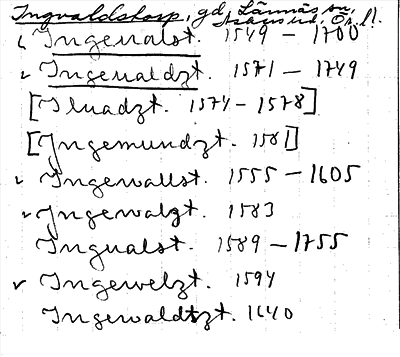 Ingvaldstorp, gd, Lännäs sn,
Askers hd, Ör. l.
Ingevalst. 1549 – 1700
Ingevaldzt. 1571 – 1749
[Iluadzt. 1574 – 1578]
[Ingemundzt. 1581]
Ingewallst. 1555 – 1605
Ingewalzt. 1583
Ingualst. 1589 – 1755
Ingewelzt. 1594
Ingewaldtzt. 1640